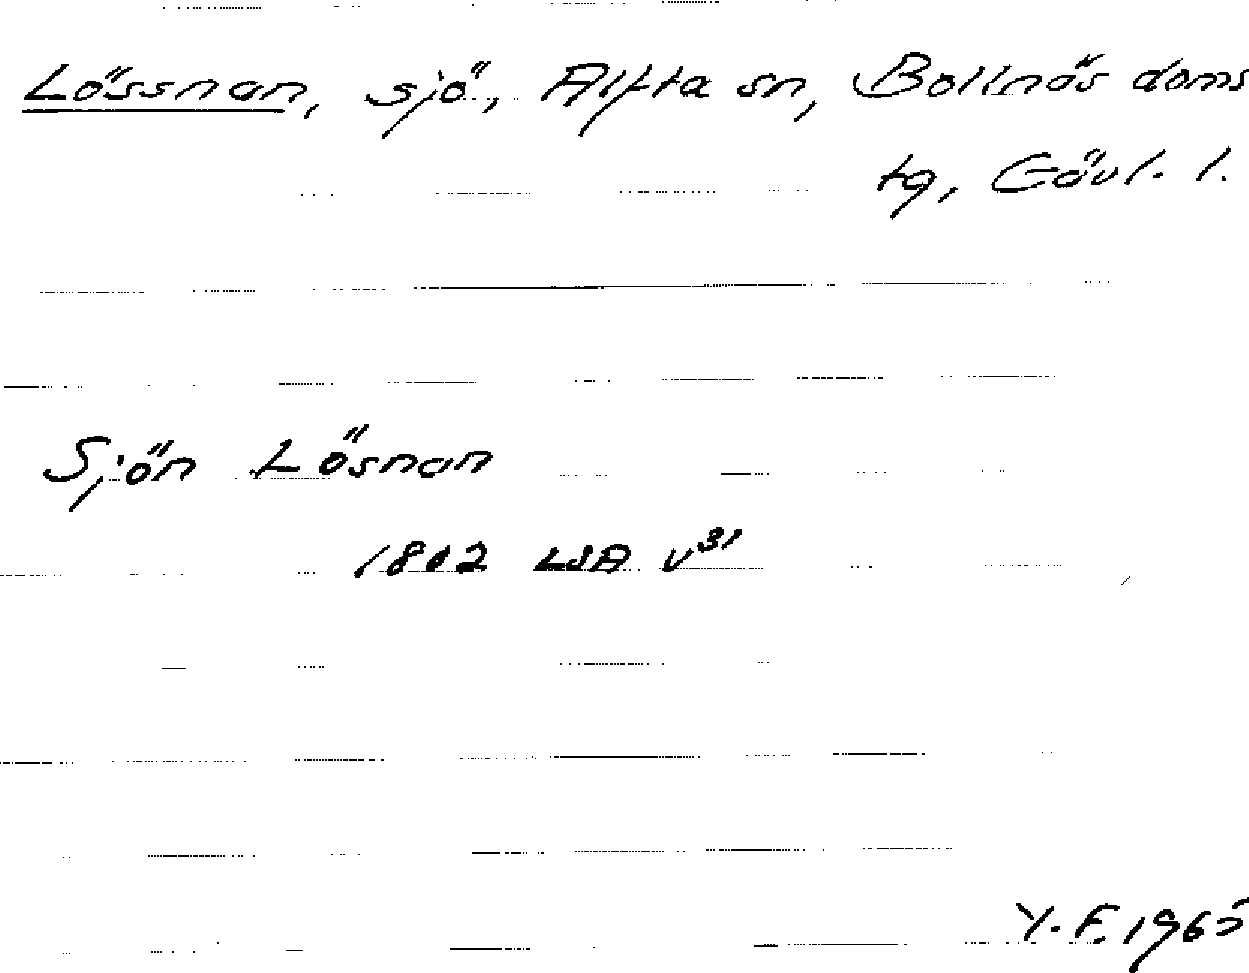 Lössnan, sjö, Alfta sn, Bollnäs doms
tg, Gävl. l.
Sjön Lösnan
1802 LSA v³¹
Y.F. 1965